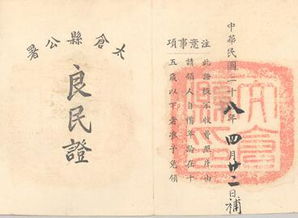 中華民國二十八年四月廿二日補
注意事項
此證概不收費照片由
請領人自備年齡在十
五歲以下者准予免領
太倉縣公署
良民證